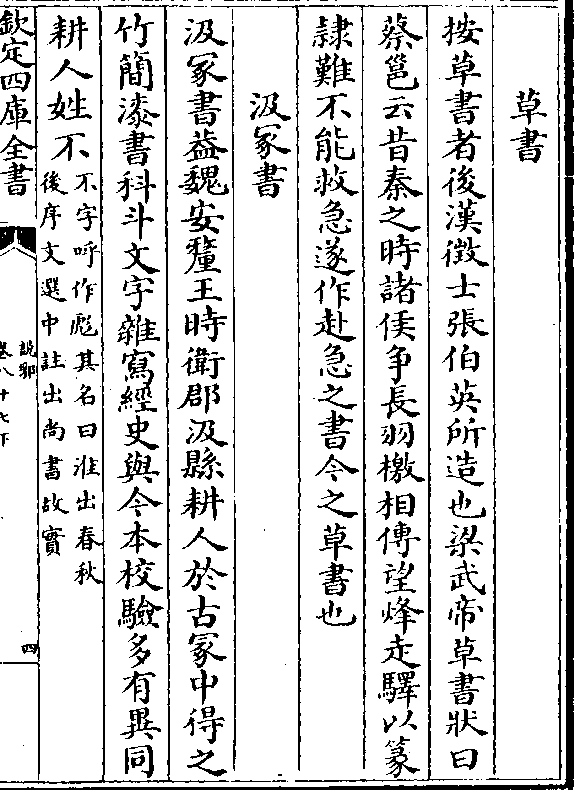 草書
按草書者後漢徵士張伯英所造也梁武帝草書狀曰
蔡邕云昔秦之時諸侯爭長羽檄相傳望烽走驛以篆
隸難不能救急遂作赴急之書今之草書也
汲冢書
汲冢書葢魏安釐王時衛郡汲縣耕人於古冢中得之
竹簡漆書科斗文字雜寫經史與今本校驗多有異同
耕人姓不
不字呼作彪其名曰淮出春秋
後序文選中註出尚書故實
欽定四庫全書
說郛
卷八十七下
四